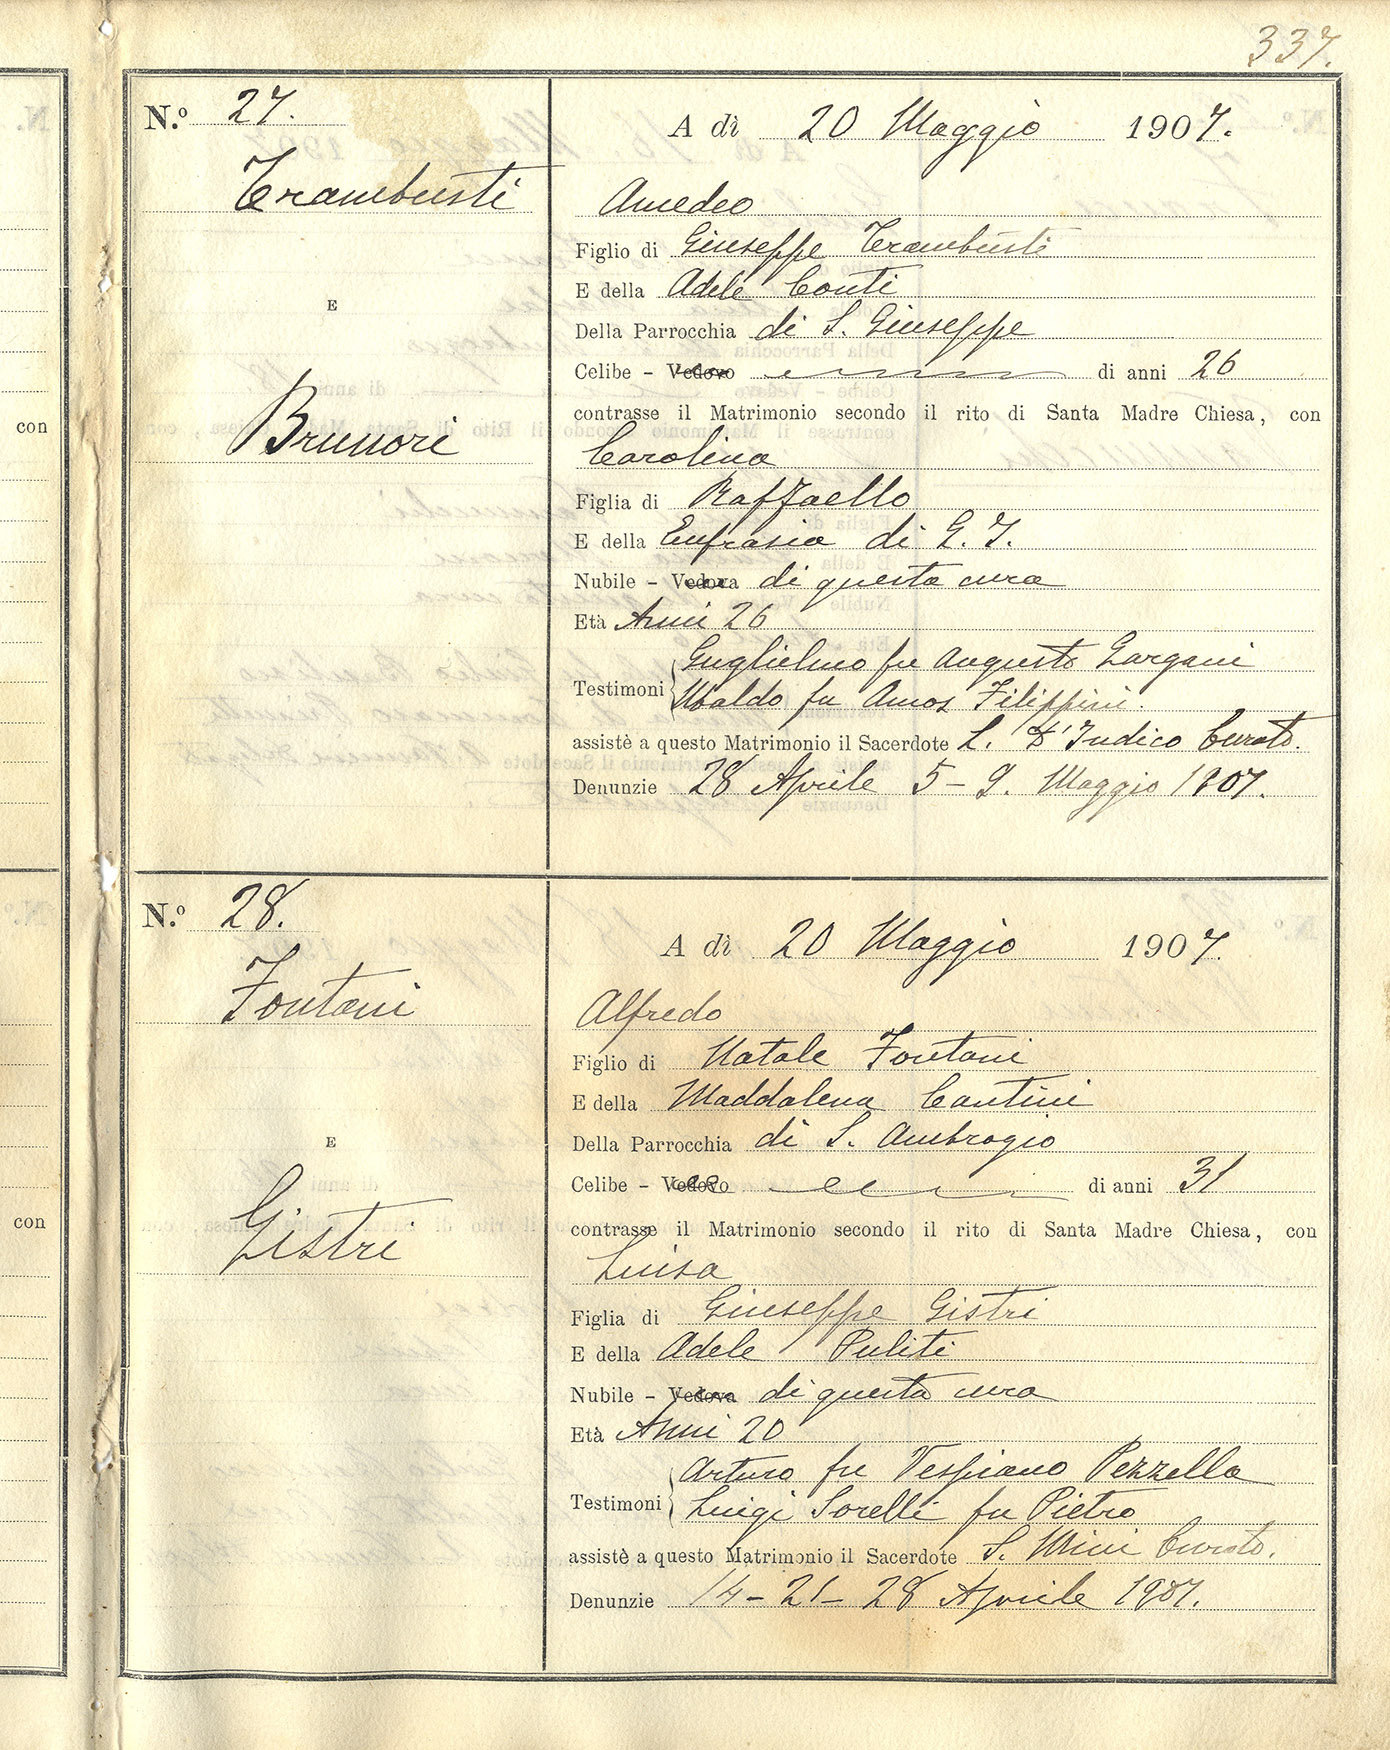 337.
con
N.º 27.
A dì 20 Maggio 1907.
Trambusti
Amedeo
Figlio di Giuseppe Trambusti
E
E della Adele Conti
Della Parrocchia di S. Giuseppe
Celibe - Vedovo di anni 26
contrasse il Matrimonio secondo il rito di Santa Madre Chiesa, con
Brunori
Carolina
Figlia di Raffaello
E della Eufrasia di G. I.
Nubile - Vedova di questa cura
Età Anni 26
Testimoni
Guglielmo fu Augusto Gargani
Ubaldo fu Amos Filippini.
assistè a questo Matrimonio il Sacerdote L. D'Indico Curato.
Denunzie 28 Aprile 5 - 9. Maggio 1907.
con
N.º 28.
A dì 20 Maggio 1907.
Fontani
Alfredo
Figlio di Natale Fontani
E della Maddalena Cantini
E
Della Parrocchia di S. Ambrogio
Celibe - Vedovo di anni 31
contrasse il Matrimonio secondo il rito di Santa Madre Chiesa, con
Gistri
Luisa
Figlia di Giuseppe Gistri
E della Adele Puliti
Nubile - Vedova di questa cura
Età Anni 20
Testimoni
Arturo fu Vespiano Pezzella
Luigi Sorelli fu Pietro
assistè a questo Matrimonio il Sacerdote S. Mini Curato.
Denunzie 14 - 21 - 28 Aprile 1907.